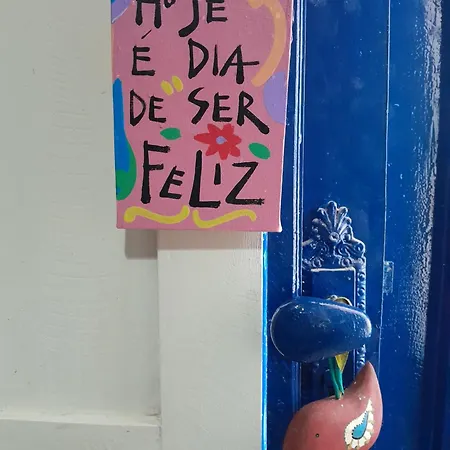 HOJE
É DIA
DE SER
FELIZ